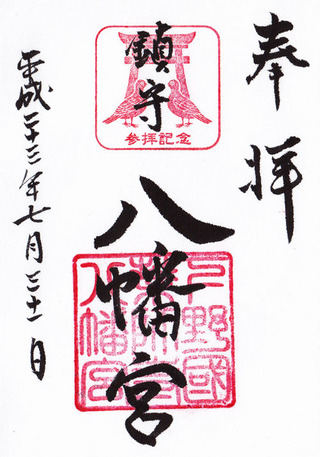 奉拝
鎮守
参拝記念
八幡宮
下野國
薬師寺
八幡宮
平成二十三年七月三十一日